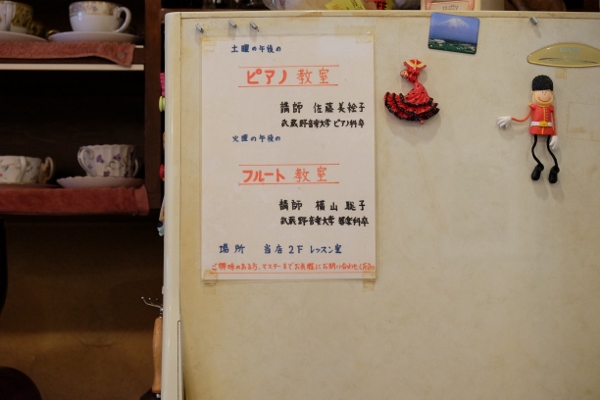 土曜の午後の
ピアノ教室
講師 佐藤美絵子
武蔵野音楽大学 ピアノ科卒
火曜の午後の
フルート教室
講師 横山聡子
武蔵野音楽大学 器楽科卒
場所 当店2F レッスン室
ご興味のある方、マスターまでお気軽にお問い合わせ下さい